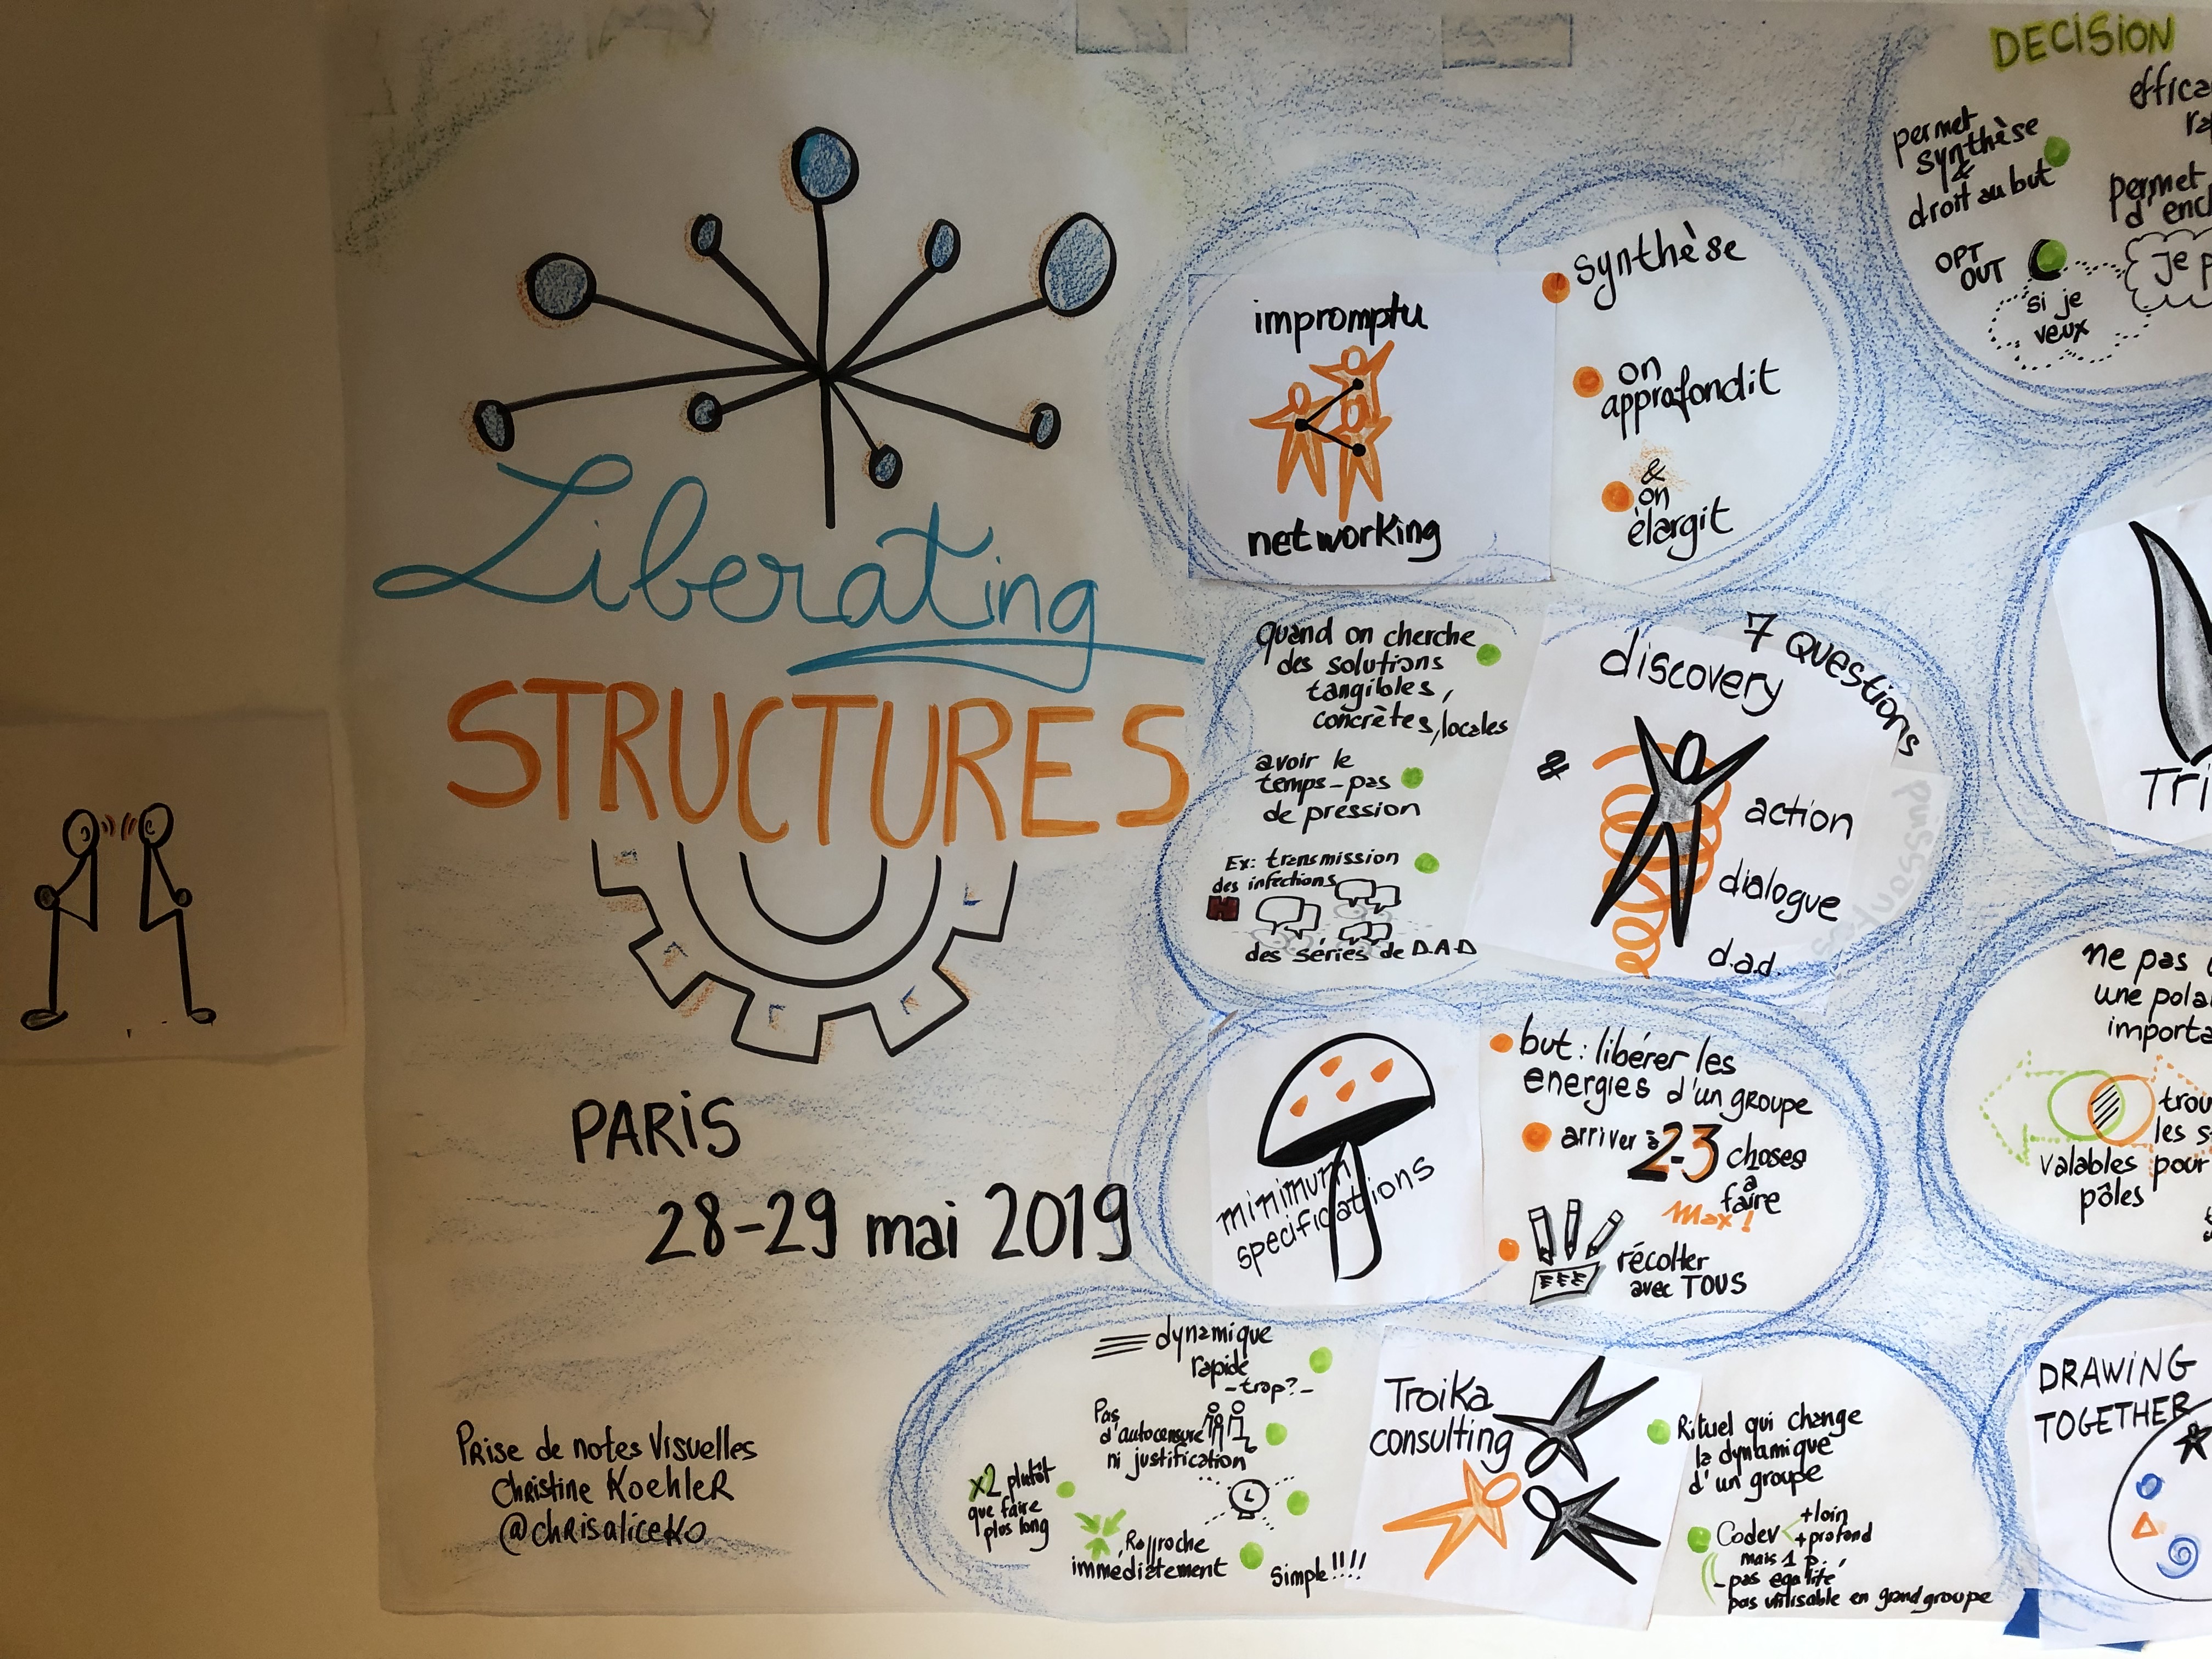 Liberating
STRUCTURES
PARIS
28-29 mai 2019
Prise de notes Visuelles
Christine Koehler
@chrisaliceko
impromptu
networking
synthèse
on
approfondit
&
on
élargit
quand on cherche
des solutions
tangibles,
concrètes, locales
avoir le
temps - pas
de pression
Ex: transmission
des infections
H
des séries de D.A.D
7 questions
puissantes
discovery
&
action
dialogue
d.a.d.
minimum
specifications
but: libérer les
energies d'un groupe
arriver à 2-3 choses
à
faire
Max!
récolter
avec TOUS
dynamique
rapide
-trop?-
Pas
d'autocensure
ni justification
x2 plutôt
que faire
plus long
Rapproche
immédiatement
Simple!!!!
Troika
consulting
Rituel qui change
la dynamique
d'un groupe
Codev
+loin
+profond
mais 1 p.
-pas égalité
pas utilisable en grand groupe
DECISION
permet
synthèse
&
droit au but
effica
ra
permet
d'encl
OPT
OUT
si je
veux
je p
Tri
ne pas
une pola
importa
trou
les s
valables pour
pôles
DRAWING
TOGETHER